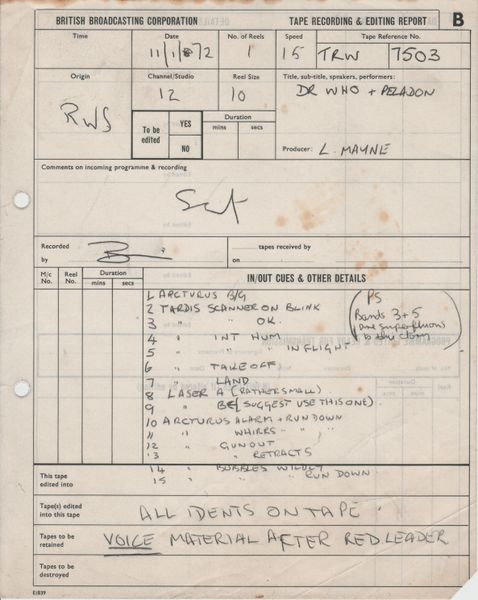 BRITISH BROADCASTING CORPORATION TAPE RECORDING & EDITING REPORT B
Time Date No. of Reels Speed Tape Reference No.
11/1/72 1 15 TRW 7503
Origin Channel/Studio Reel Size Title, sub-title, speakers, performers:
RWS 12 10 DR WHO + PELADON
To be edited YES NO Duration mins secs
Producer: L. MAYNE
Comments on incoming programme & recording
Recorded by tapes received by
on
M/c No. Reel No. Duration mins secs IN/OUT CUES & OTHER DETAILS
1 ARCTURUS B/G
2 TARDIS SCANNER ON BLINK
3 " " OK.
4 " INT HUM
5 " " IN FLIGHT
6 " TAKE OFF
7 " LAND
8 LASER A (RATHER SMALL)
9 " B (SUGGEST USE THIS ONE)
10 ARCTURUS ALARM + RUN DOWN
11 " WHIRRS " "
12 " GUN OUT
13 " " RETRACTS
14 " BUBBLES WILDLY
15 " " RUN DOWN
PS
Bands 3+5
are superfluous
to the
This tape edited into
Tape(s) edited into this tape ALL IDENTS ON TAPE.
Tapes to be retained VOICE MATERIAL AFTER RED LEADER
Tapes to be destroyed
E/839